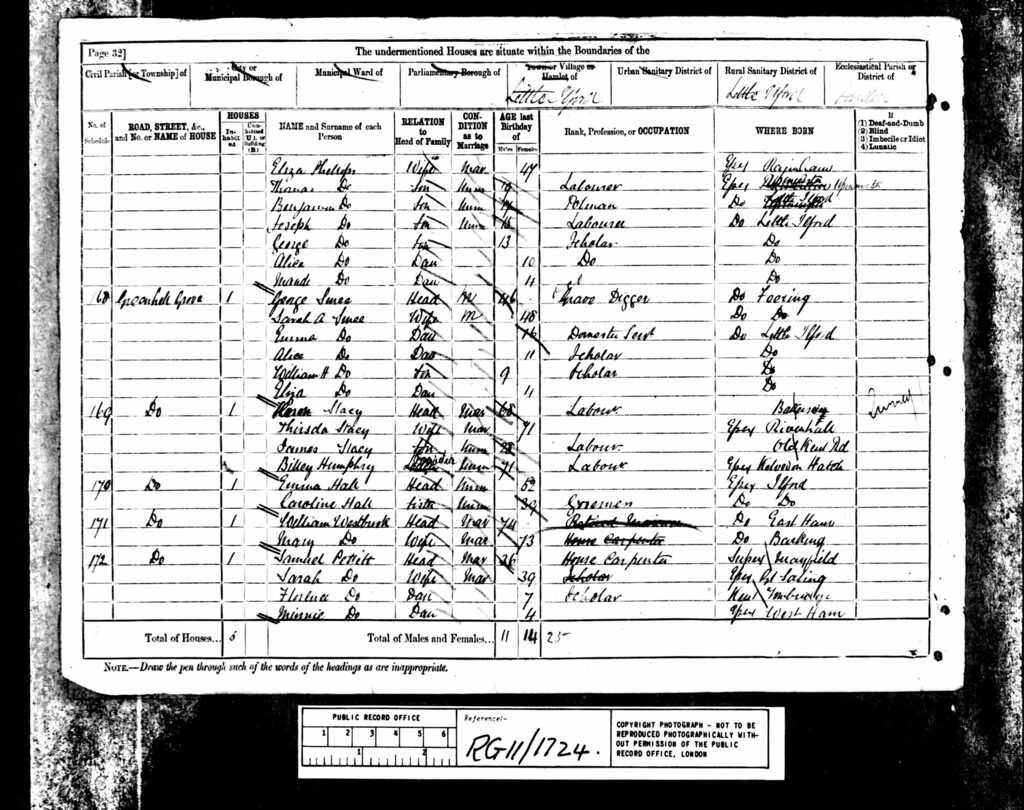 Page 32]
The undermentioned Houses are situate within the Boundaries of the
Civil Parish [or Township] of
City or Municipal Borough of
Municipal Ward of
Parliamentary Borough of
Town or Village or Hamlet of
Little Ilford
Urban Sanitary District of
Rural Sanitary District of
Little Ilford
Ecclesiastical Parish or District of
No. of Schedule
ROAD, STREET, &c., and No. or NAME of HOUSE
HOUSES
In-habit ed
Un-inhabited (U.), or Building (B.)
NAME and Surname of each Person
RELATION to Head of Family
CON-DITION as to Marriage
AGE last Birthday of
Males Females
Rank, Profession, or OCCUPATION
WHERE BORN
If (1) Deaf-and-Dumb (2) Blind (3) Imbecile or Idiot (4) Lunatic
Eliza Phelps Wife Mar 47 Essex Rainham
Thomas Do Son Unm 19 Labourer Essex
Benjamin Do Son Unm Do Little Ilford
Joseph Do Son Unm 15 Labourer Do Little Ilford
George Do Son 13 Scholar Do
Alice Do Dau 10 Do Do
Maude Do Dau 4 Do
168 Greenhill Grove 1 George Smee Head M 46 Grave Digger Do Feering
Sarah A Smee Wife M 48 Do Do
Emma Do Dau 16 Domestic Serv Do Little Ilford
Alice Do Dau 11 Scholar Do
William H Do Son 9 Scholar Do
Eliza Do Dau 4 Do
169 Do 1 Stacy Head Mar 68 Labour Battersea Surrey
Thirsda Stacy Wife Mar 71 Essex Rivenhall
James Stacy Son Unm 28 Labour Old Kent Rd
Billey Humphry Boarder Unm 71 Labour Essex Kelvedon Hatch
170 Do 1 Emma Hall Head Unm 52 Essex Ilford
Caroline Hall Sister Unm 39 Do Do
171 Do 1 William Westbrook Head Mar 74 Retired Do East Ham
Mary Do Wife Mar 73 House Carpenter Do Barking
172 Do 1 Samuel Pettitt Head Mar 36 House Carpenter Sussex Mayfield
Sarah Do Wife Mar 39 Scholar Essex Gt Saling
Florence Do Dau 7 Scholar Kent Tonbridge
Minnie Do Dau 4 Essex West Ham
Total of Houses... 5 Total of Males and Females... 11 14 25
NOTE.—Draw the pen through such of the words of the headings as are inappropriate.
PUBLIC RECORD OFFICE
1 2 3 4 5 6
1 2
Reference:-
RG11/1724.
COPYRIGHT PHOTOGRAPH - NOT TO BE REPRODUCED PHOTOGRAPHICALLY WITH-OUT PERMISSION OF THE PUBLIC RECORD OFFICE, LONDON